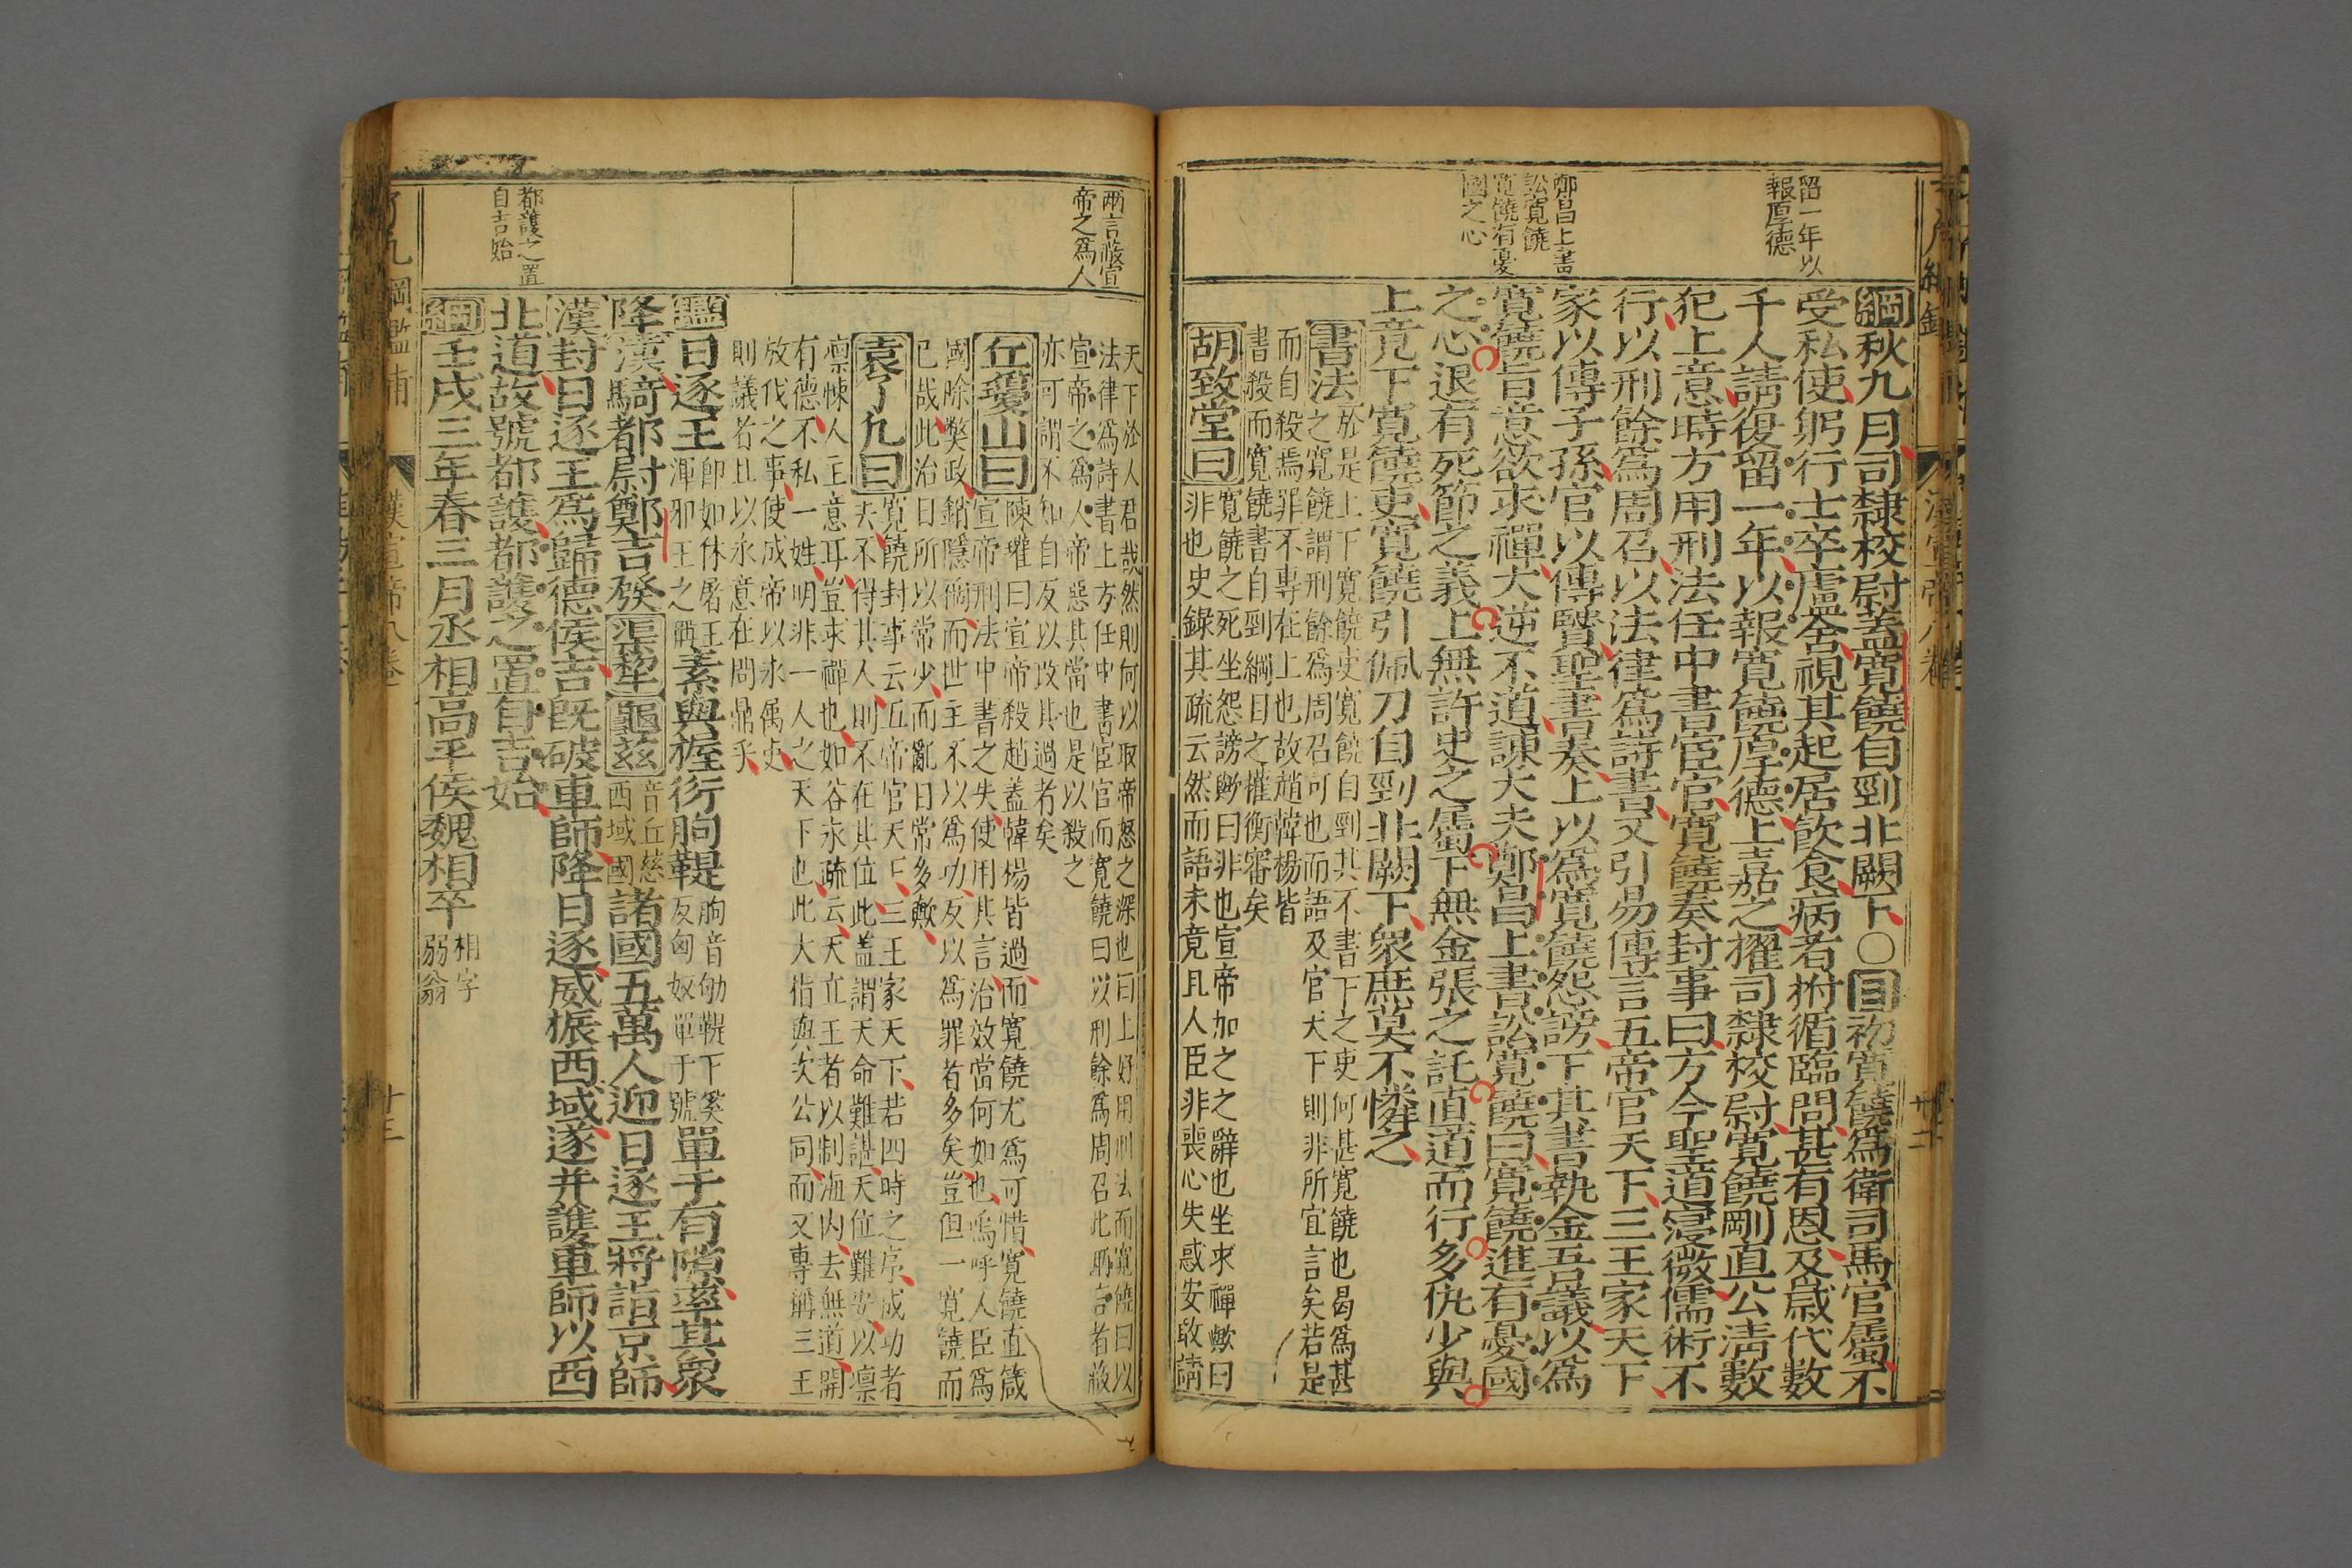 留一年以
報厚德
鄭昌上書
訟寬饒
寬饒有憂
國之心
綱秋九月司隸校尉蓋寬饒自剄北闕下○目初寬饒為衛司馬官屬不
受私使躬行士卒廬舍視其起居飲食病者拊循臨問甚有恩及歲代數
千人請復留一年以報寬饒厚德上嘉之擢司隸校尉寬饒剛直公清數
犯上意時方用刑法任中書宦官寬饒奏封事曰方今聖道寖微儒術不
行以刑餘為周召以法律為詩書又引易傳言五帝官天下三王家天下
家以傳子孫官以傳賢聖書奏上以為寬饒怨謗下其書執金吾議以為
寬饒旨意欲求禪大逆不道諫大夫鄭昌上書訟寬饒曰寬饒進有憂國
之心退有死節之義上無許史之屬下無金張之託直道而行多仇少與
上竟下寬饒吏寬饒引佩刀自剄北闕下衆庶莫不憐之
書法於是上下寬饒吏寬饒自剄其不書下之吏何甚寬饒也曷為甚
之寬饒謂刑餘為周召可也而語及官天下則非所宜言矣若是
而自殺焉罪不專在上也故趙韓楊皆
書殺而寬饒書自剄綱目之權衡審矣
胡致堂曰寬饒之死坐怨謗歟曰非也宣帝加之之辭也坐求禪歟曰
非也史錄其疏云然而語未竟且人臣非喪心失惑安敢請
兩言蔽宣
帝之為人
都護之置
自吉始
天下於人君哉然則何以取帝怒之深也曰上好用刑法而寬饒曰以
法律為詩書上方任中書宦官而寬饒曰以刑餘為周召此兩言者蔽
宣帝之為人帝惡其當也是以殺之
亦可謂不知自反以改其過者矣
丘瓊山曰陳瓘曰宣帝殺趙蓋韓楊皆過而寬饒尤為可惜寬饒直箴
宣帝刑法中書之失使用其言治效當何如也嗚呼人臣為
國除獘政銷隱禍而世主不以為功反以為罪者多矣豈但一寬饒而
已哉此治日所以常少而亂日常多歟
袁了凡曰寬饒封事云五帝官天下三王家天下若四時之序成功者
去不得其人則不在其位此蓋謂天命難諶天位難安以凜
凜悚人主意耳豈求禪也如谷永疏云天立王者以制海內去無道開
有德不私一姓明非一人之天下也此大指與次公同而又專稱三王
放伐之事使成帝以永屬吏
則議者且以永意在問鼎乎
鑑日逐王即如休屠王渾邪王之稱素與握衍朐鞮朐音劬鞮下奚反匈奴單于號單于有隙率其衆
降漢騎都尉鄭吉發渠犂龜茲音丘慈西域國諸國五萬人迎日逐王將詣京師
漢封日逐王為歸德侯吉既破車師降日逐威振西域遂并護車師以西
北道故號都護都護之置自吉始
綱壬戌三年春三月丞相高平侯魏相卒相字弱翁
了凡綱鑑補
漢宣帝八卷
廿三